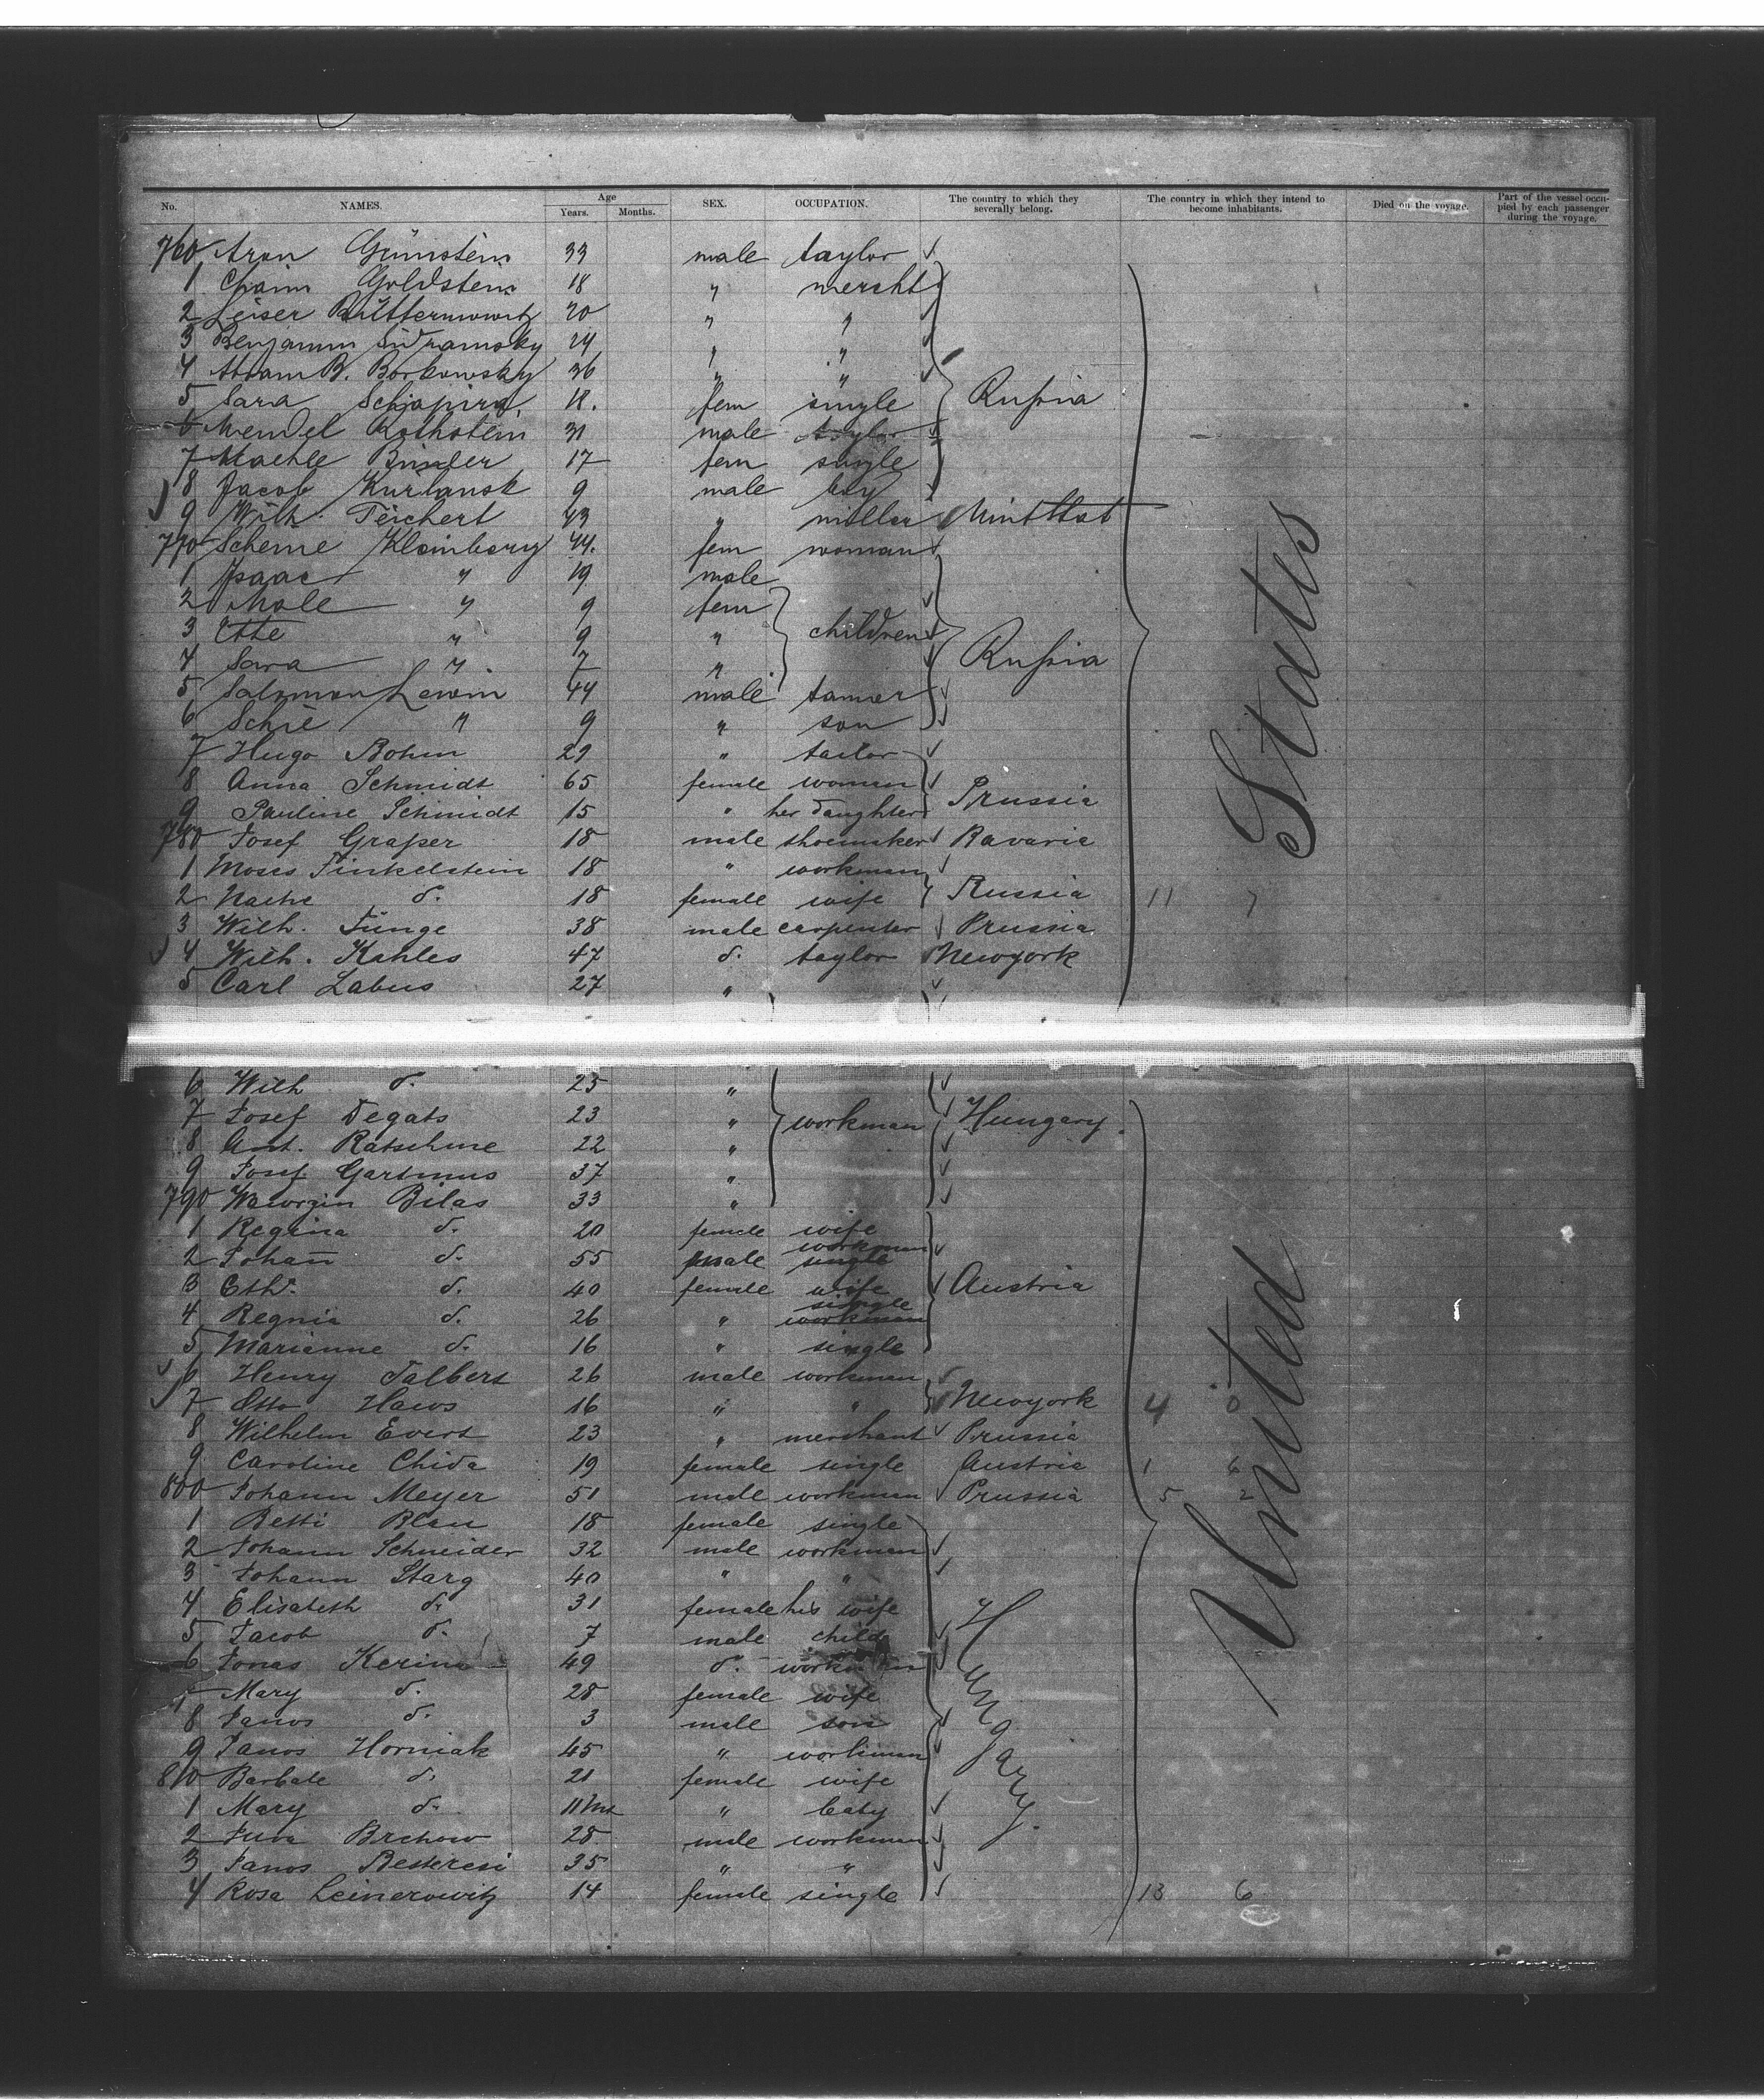 No. NAMES. Age Years. Months. SEX. OCCUPATION. The country to which they severally belong. The country in which they intend to become inhabitants. Died on the voyage. Part of the vessel occupied by each passenger during the voyage.
760 Aron Grünstein 33 male taylor
1 Chaim Goldstein 18 " mercht
2 Leiser 20 " "
3 Benjamin Sidramsky 24 " "
4 Abram B. Borkowsky 36 " "
5 Sara Schapira 18. fem single Russia
6 Mendel Rothstein 31 male taylor
7 Machle Binder 17 fem single
8 Jacob Kurlansk 9 male boy
9 Wilh. Teichert 43 " miller
770 Scheine Kleinberg 44. fem woman
1 Isaac " 19 male
2 Male " 9 fem
3 Ette " 9 " children
4 Sara " 7 " Russia
5 Salzman Lewin 44 male tanner
6 Schie " 9 " son
7 Hugo Bohm 29 " tailor
8 Anna Schmidt 65 female woman
9 Pauline Schmidt 15 " her daughter Prussia
780 Josef Graper 18 male shoemaker Bavaria
1 Moses Finkelstein 18 " workman
2 d. 18 female wife Russia 11 7
3 Wilh. Junge 38 male carpenter Prussia
4 Wilh. Kahles 47 d. taylor Newyork
5 Carl Labus 27 "
States
6 Wilh d. 25 "
7 Josef Degats 23 " workman Hungary.
8 Ant. Ratschme 22 "
9 Josef Gartmus 37 "
790 Wawrzin Bilas 33 "
1 Regina d. 20 female wife
2 Johan̄ d. 55 male workman single
3 Eth. d. 40 female wife Austria
4 Regnia d. 26 " single workman
5 Marianne d. 16 " single
6 Henry Talbert 26 male workman
7 Otto Haws 16 " " Newyork 4 0
8 Wilhelm Evert 23 " merchant Prussia
9 Caroline Chida 19 female single Austria 1 6
800 Johann Meyer 51 male workman Prussia 5 2
1 Betti Blau 18 female single
2 Johann Schneider 32 male workman
3 Johann Starg 40 " "
4 Elisabeth d. 31 female his wife
5 Jacob d. 7 male child
6 Jonas 49 d. workman
7 Mary d. 28 female wife
8 Janos d. 3 male son
9 Janos Horniak 45 " workman
810 Barbale d. 21 female wife
1 Mary d. 11 Mt " baby
2 Juva Brehow 28 male workman
3 Janos 35 " "
4 Rosa Leinerowitz 14 female single 13 6
Hungary.
United